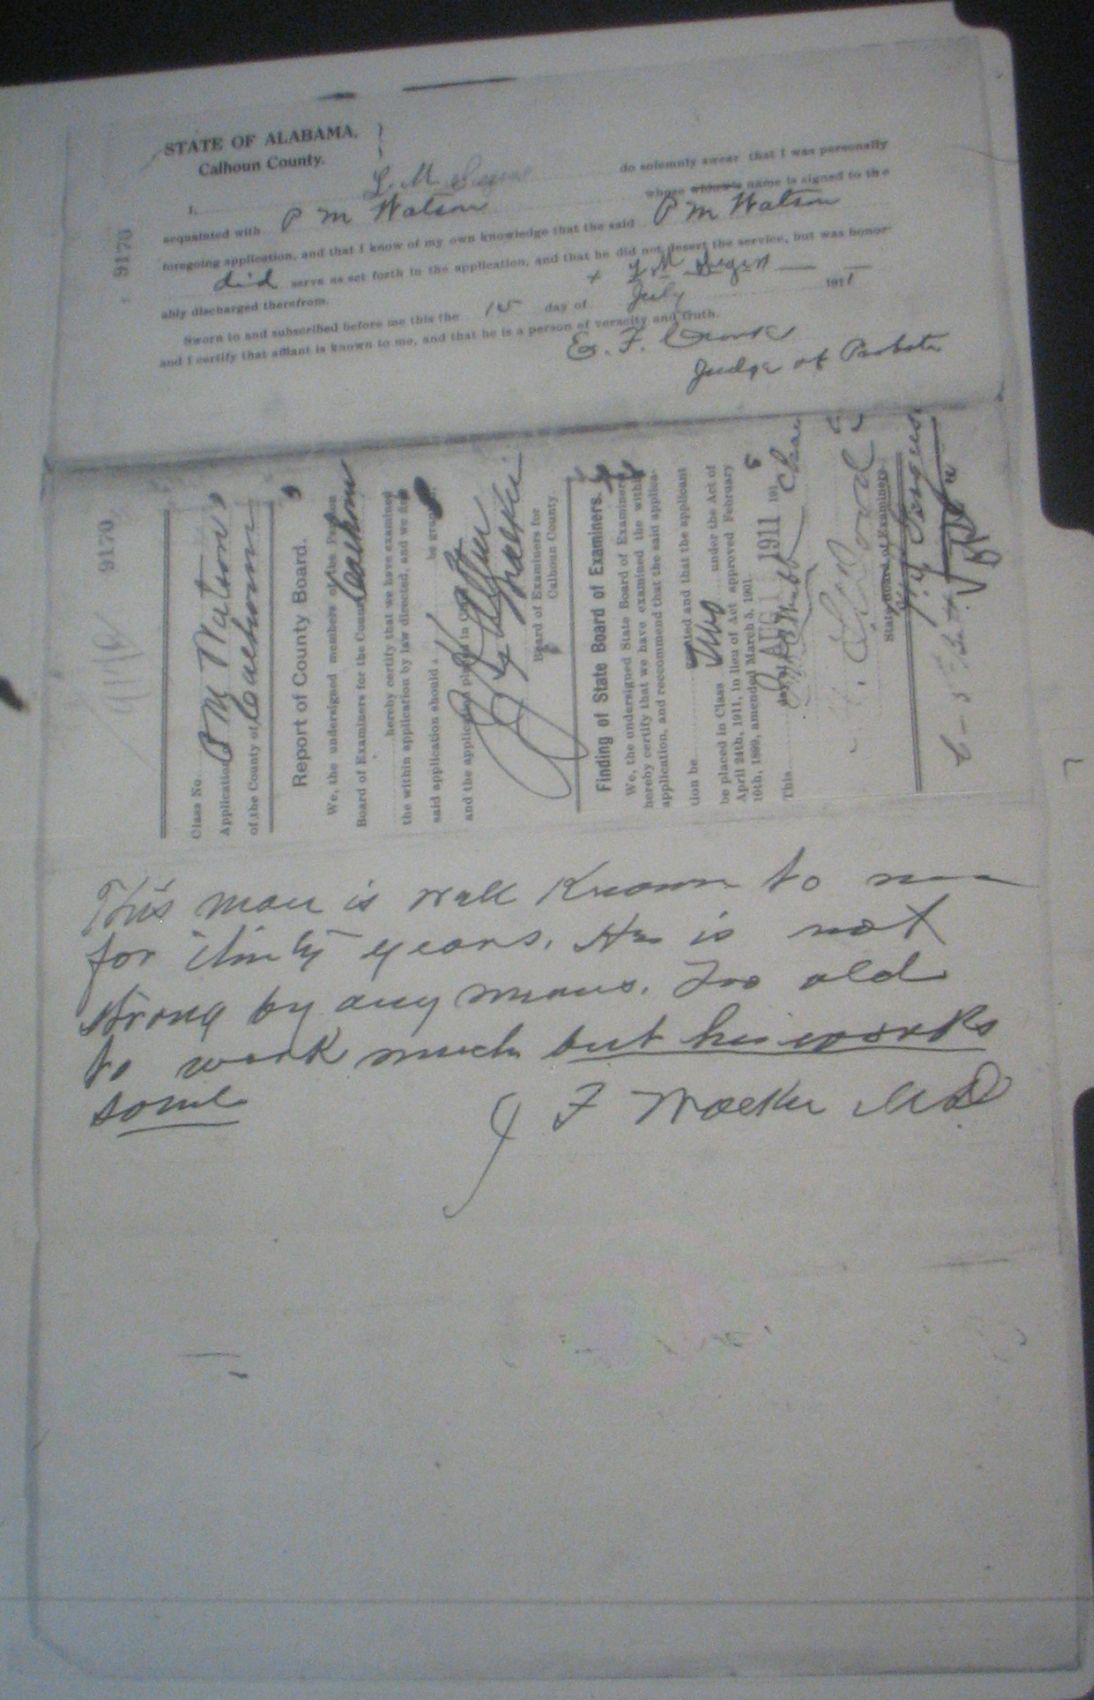 STATE OF ALABAMA,
Calhoun County.
I, L. M. do solemnly swear that I was personally
acquainted with P M Watson whose widow's name is signed to the
foregoing application, and that I know of my own knowledge that the said P M Watson
did serve as set forth in the application, and that he did not desert the service, but was honor-
ably discharged therefrom.
L M
Sworn to and subscribed before me this the 15 day of July 1911
and I certify that affiant is known to me, and that he is a person of veracity and truth.
E. F. Crook
Judge of Probate
9170
9170
Class No.
Application P M Watson
of the County of Calhoun
Report of County Board.
We, the undersigned members of the Pension
Board of Examiners for the County Calhoun
hereby certify that we have examined
the within application by law directed, and we find
said application should be granted
and the applicant placed in Class
Board of Examiners for
Calhoun County
Finding of State Board of Examiners.
We, the undersigned State Board of Examiners
hereby certify that we have examined the within
application, and recommend that the said applica-
tion be and that the applicant
be placed in Class Two under the Act of
April 24th, 1911, in lieu of Act approved February
10th, 1899, amended March 5, 1901.
This AUG 1 1911 191
State Board of Examiners
This man is well Known to me
for thirty years. He is not
strong by any means. Too old
to work much but he works
some
J F